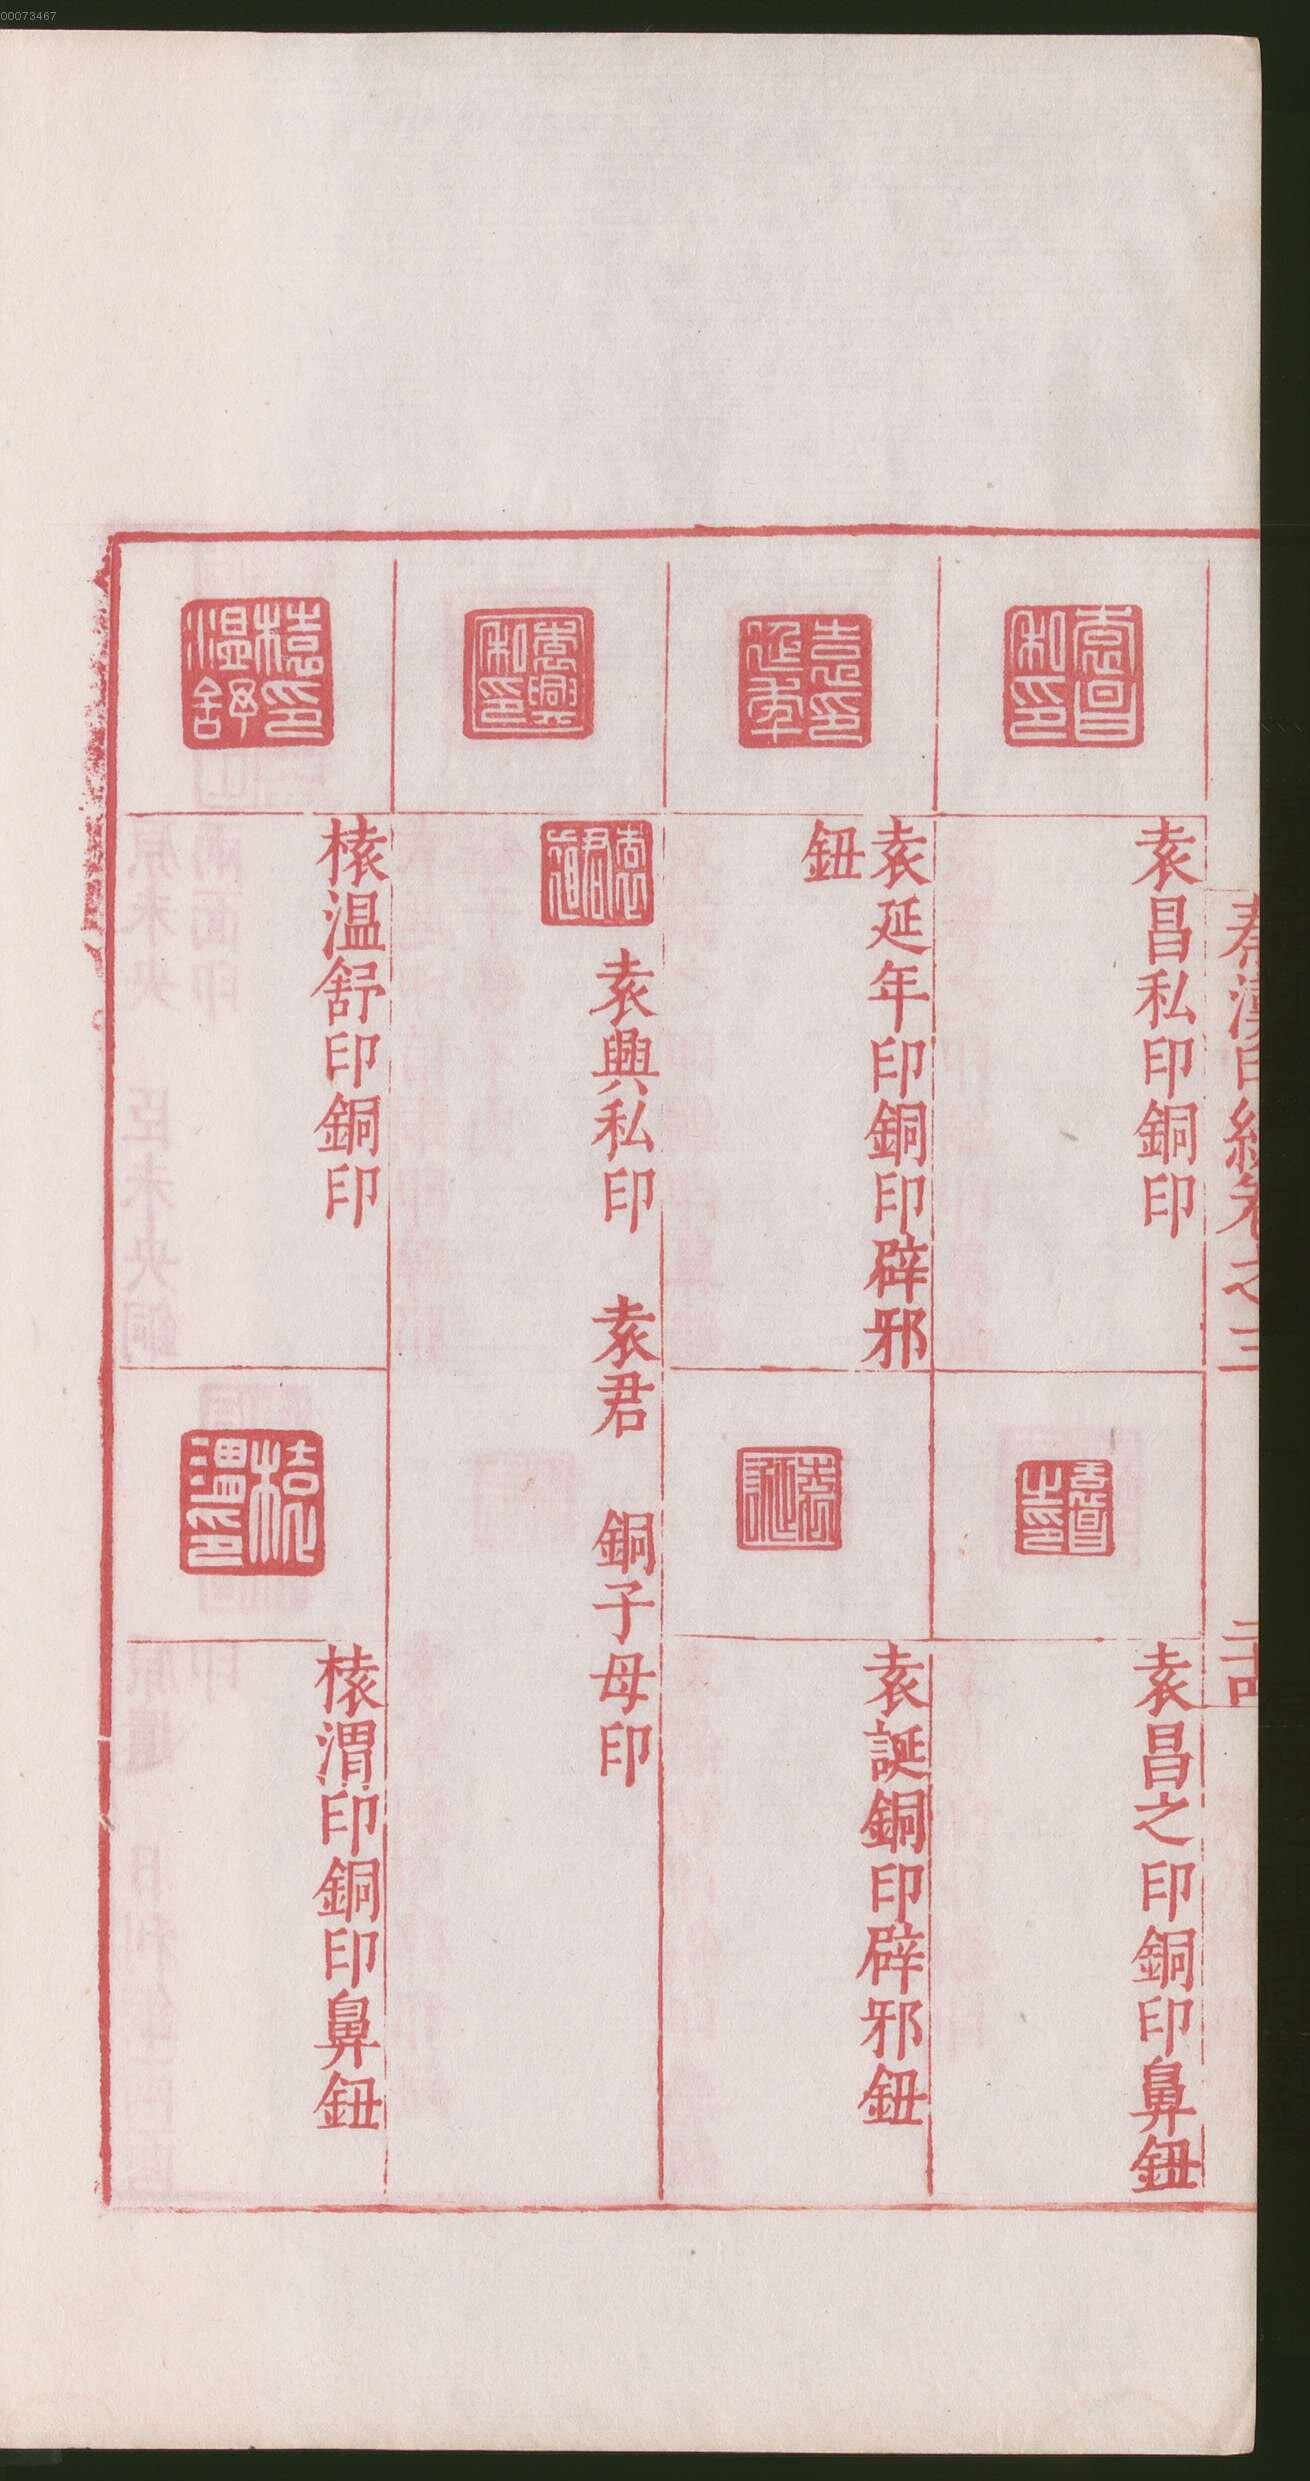 00073467
秦漢印統卷之三
袁昌私印銅印
袁昌之印銅印鼻鈕
袁延年印銅印辟邪
鈕
袁誕銅印辟邪鈕
袁興私印 袁君 銅子母印
榬溫舒印銅印
榬渭印銅印鼻鈕